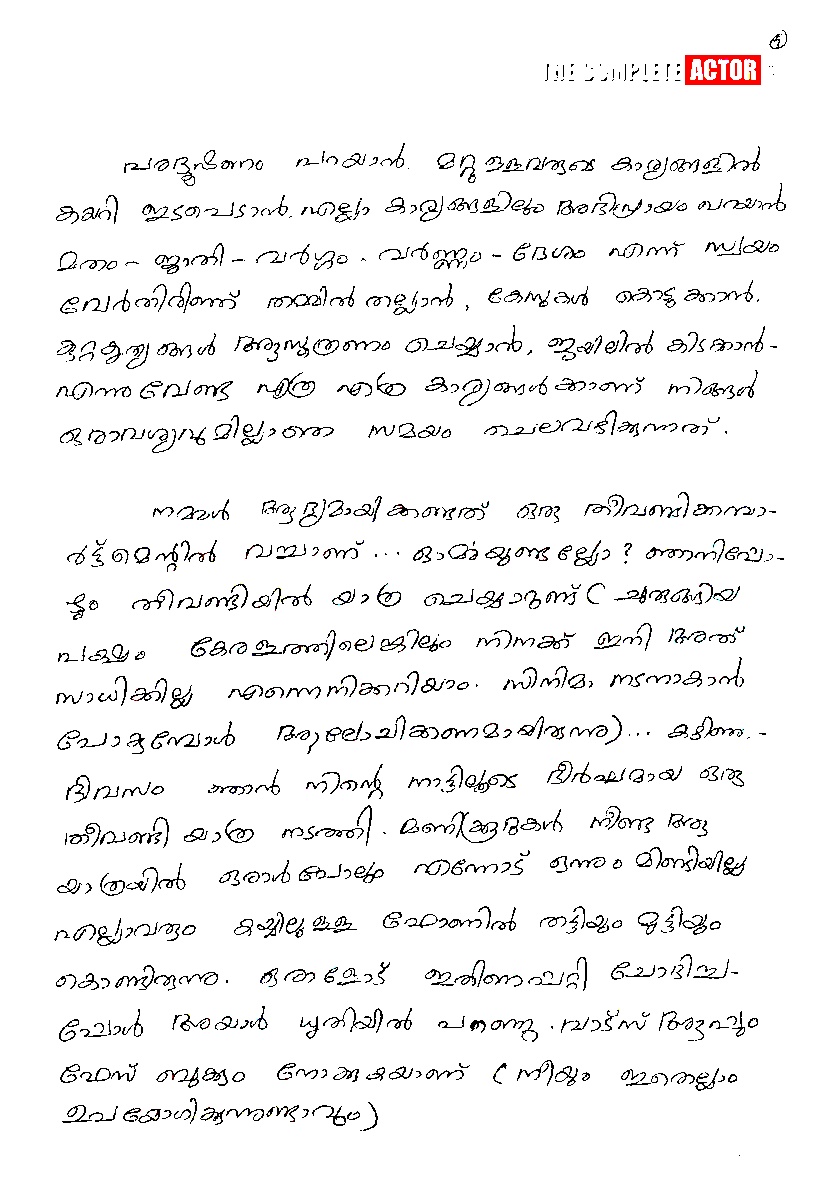 5
THE COMPLETE ACTOR
പരദൂഷണം പറയാൻ. മറ്റുള്ളവരുടെ കാര്യങ്ങളിൽ
കയറി ഇടപെടാൻ. എല്ലാ കാര്യങ്ങളിലും അഭിപ്രായം പറയാൻ
മതം - ജാതി - വർഗ്ഗം - വർണ്ണം - ദേശം എന്ന് സ്വയം
വേർതിരിഞ്ഞ് തമ്മിൽ തല്ലാൻ, കേസുകൾ കൊടുക്കാൻ.
കുറ്റകൃത്യങ്ങൾ ആസൂത്രണം ചെയ്യാൻ, ജയിലിൽ കിടക്കാൻ -
എന്നുവേണ്ട എത്ര എത്ര കാര്യങ്ങൾക്കാണ് നിങ്ങൾ
ഒരാവശ്യവുമില്ലാതെ സമയം ചെലവഴിക്കുന്നത്.
നമ്മൾ ആദ്യമായി കണ്ടത് ഒരു തീവണ്ടിക്കമ്പാ-
ർട്ട്മെന്റിൽ വച്ചാണ് ... ഓർമ്മയുണ്ടല്ലോ? ഞാനിപ്പോ-
ഴും തീവണ്ടിയിൽ യാത്ര ചെയ്യാറുണ്ട് ( ചുരുങ്ങിയ
പക്ഷം കേരളത്തിലെങ്കിലും നിനക്ക് ഇനി അത്
സാധിക്കില്ല എന്നെനിക്കറിയാം. സിനിമാ നടനാകാൻ
പോകുമ്പോൾ ആലോചിക്കണമായിരുന്നു) ... കഴിഞ്ഞ -
ദിവസം ഞാൻ നിന്റെ നാട്ടിലൂടെ ദീർഘമായ ഒരു
തീവണ്ടി യാത്ര നടത്തി. മണിക്കൂറുകൾ നീണ്ട ആ
യാത്രയിൽ ഒരാൾപോലും എന്നോട് ഒന്നും മിണ്ടിയില്ല
എല്ലാവരും കയ്യിലുള്ള ഫോണിൽ തട്ടിയും മുട്ടിയും
കൊണ്ടിരുന്നു. ഒരാളോട് ഇതിനെപ്പറ്റി ചോദിച്ച-
പ്പോൾ അയാൾ ധൃതിയിൽ പറഞ്ഞു. വാട്സ് ആപ്പും
ഫേസ് ബുക്കും നോക്കുകയാണ് ( നീയും ഇതെല്ലാം
ഉപയോഗിക്കുന്നുണ്ടാവും)